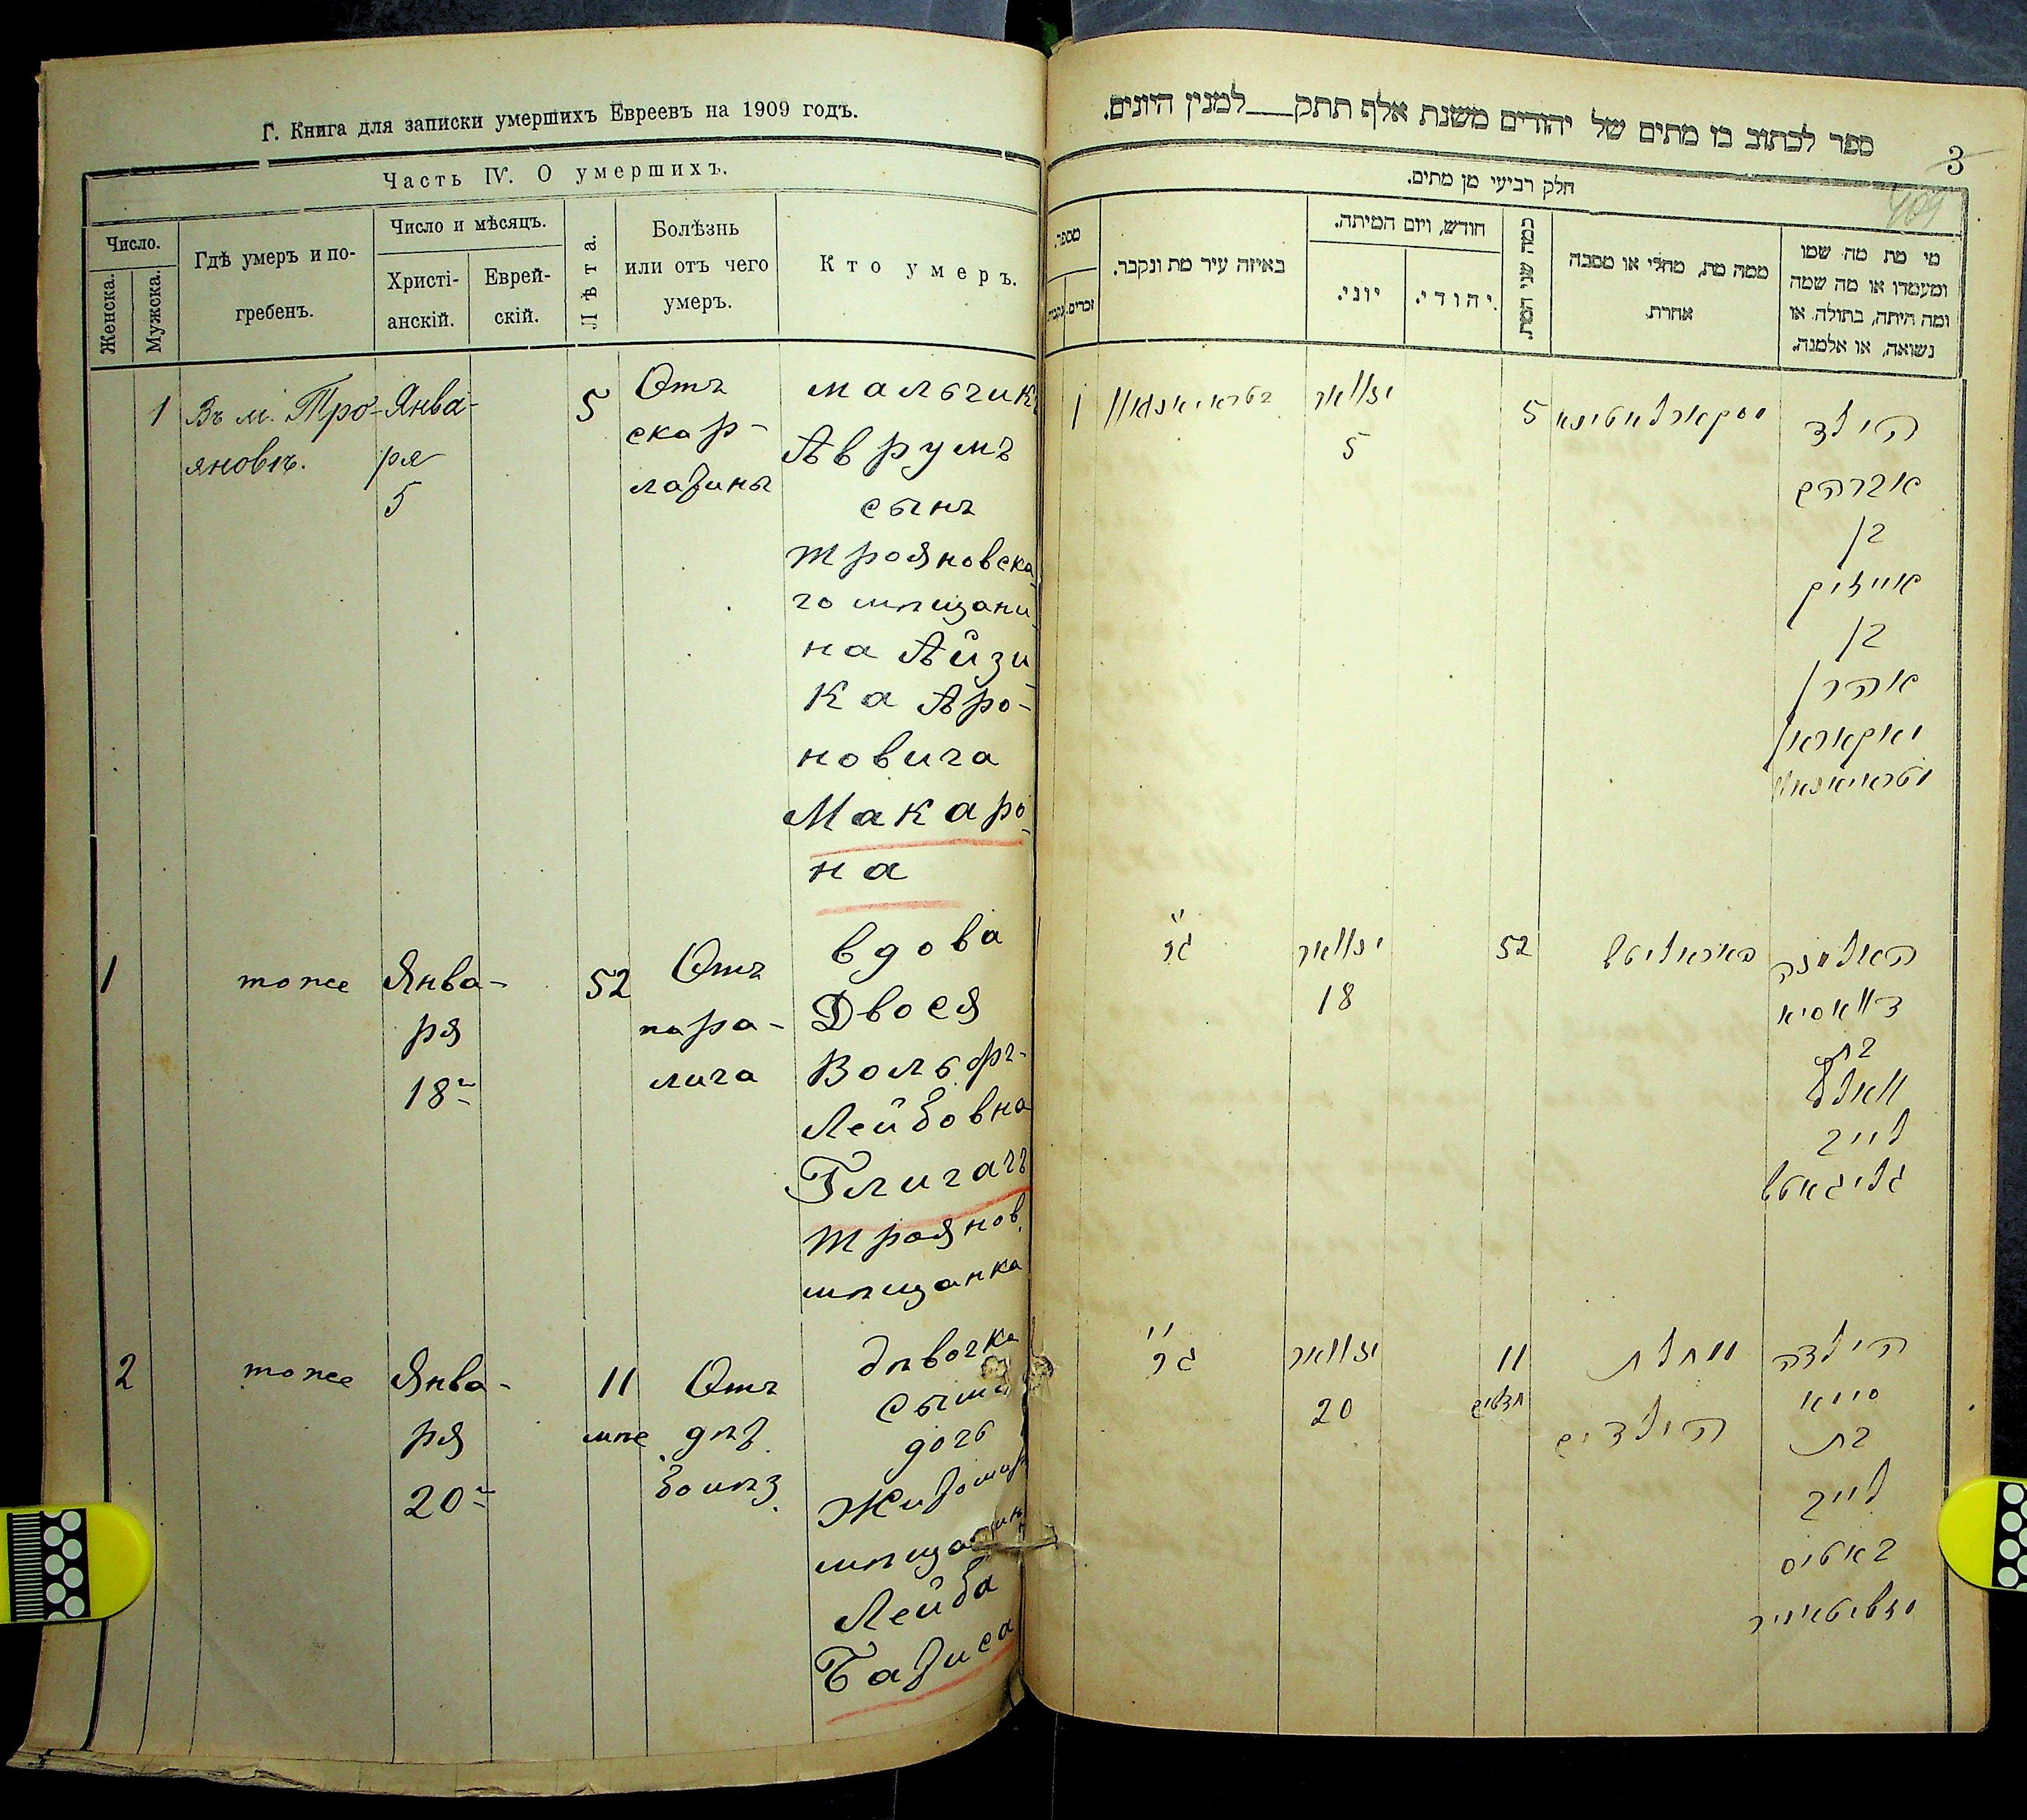 Г. Книга для записки умершихъ Евреевъ на 1909 годъ.
Часть IV. О умершихъ.
Число.
Женска.
Мужска.
Гдѣ умеръ и по-
гребенъ.
Число и мѣсяцъ.
Христі-
анскій.
Еврей-
скій.
Лѣта.
Болѣзнь
или отъ чего
умеръ.
Кто умеръ.
1
Въ м. Тро-
яновѣ.
Янва-
ря
5
5
Отъ
скар-
латины
мальчикъ
Аврумъ
сынъ
трояновска-
го мѣщани-
на Айзи
ка Аро-
новича
Макаро-
на
1
тоже
Янва-
ря
18
52
Отъ
пара-
лича
вдова
Двося
Вольфъ-
Лейбовна
Глигачъ
троянов.
мѣщанка
2
тоже
Янва-
ря
20
11
мѣс
Отъ
дѣт.
болѣз.
дѣвочка
дочь
Житомир
Лейба
Батиса
ספר לכתוב בו מתים של יהודים משנת אלף תתק למנין היונים.
3
חלק רביעי מן מתים.
409
מספר.
זכרים.
נקבה.
באיזה עיר מת ונקבר.
חודש, ויום המיתה.
יוני.
יהודי.
כמה שני המת.
ממה מת, מחלי או מסבה
אחרת.
מי מת מה שמו
ומעמדו או מה שמה
ומה היתה, בתולה או
נשואה, או אלמנה.
1
יאנוואר
5
5
הילד
אברהם
בן
אייזיק
בן
אהרן
מאקאראן
גר
יאנוואר
18
52
פאראליטש
האלמנה
דוואסיא
בת
וואלף
לייב
גליגאטש
גר
יאנוואר
20
11
חדשים
מחלת
הילדים
הילדה
סימא
בת
לייב
באטיס